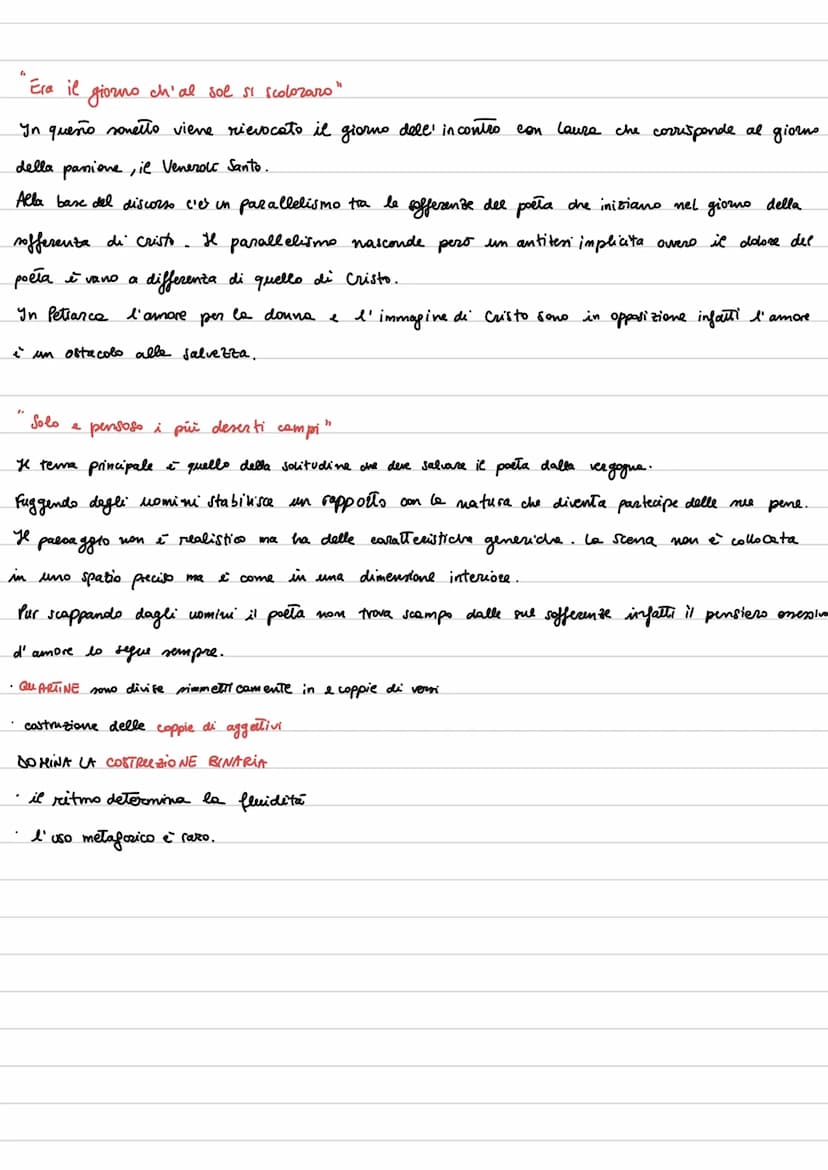 "Era il giorno ch'al sol si scoloraro"
In questo sonetto viene rievocato il giorno dell'incontro con Laura che corrisponde al giorno
della passione, il Venerdì Santo.
Alla base del discorso c'è un parallelismo tra le sofferenze del poeta che iniziano nel giorno della
sofferenza di Cristo. Il parallelismo nasconde però un antitesi implicita ovvero il dolore del
poeta è vano a differenza di quello di Cristo.
In Petrarca l'amore per la donna e l'immagine di Cristo sono in opposizione infatti l'amore
è un ostacolo alla salvezza.
"Solo e pensoso i più deserti campi"
Il tema principale è quello della solitudine che deve salvare il poeta dalla vergogna.
Fuggendo dagli uomini stabilisce un rapporto con la natura che diventa partecipe delle sue pene.
Il paesaggio non è realistico ma ha delle caratteristiche generiche. La scena non è collocata
in uno spazio preciso ma è come in una dimensione interiore.
Pur scappando dagli uomini il poeta non trova scampo dalle sue sofferenze infatti il pensiero ossessivo
d'amore lo segue sempre.
· QUARTINE sono divise simmetricamente in 2 coppie di versi
· costruzione delle coppie di aggettivi
DOMINA LA COSTRUZIONE BINARIA
· il ritmo determina la fluidità
· l'uso metaforico è raro.